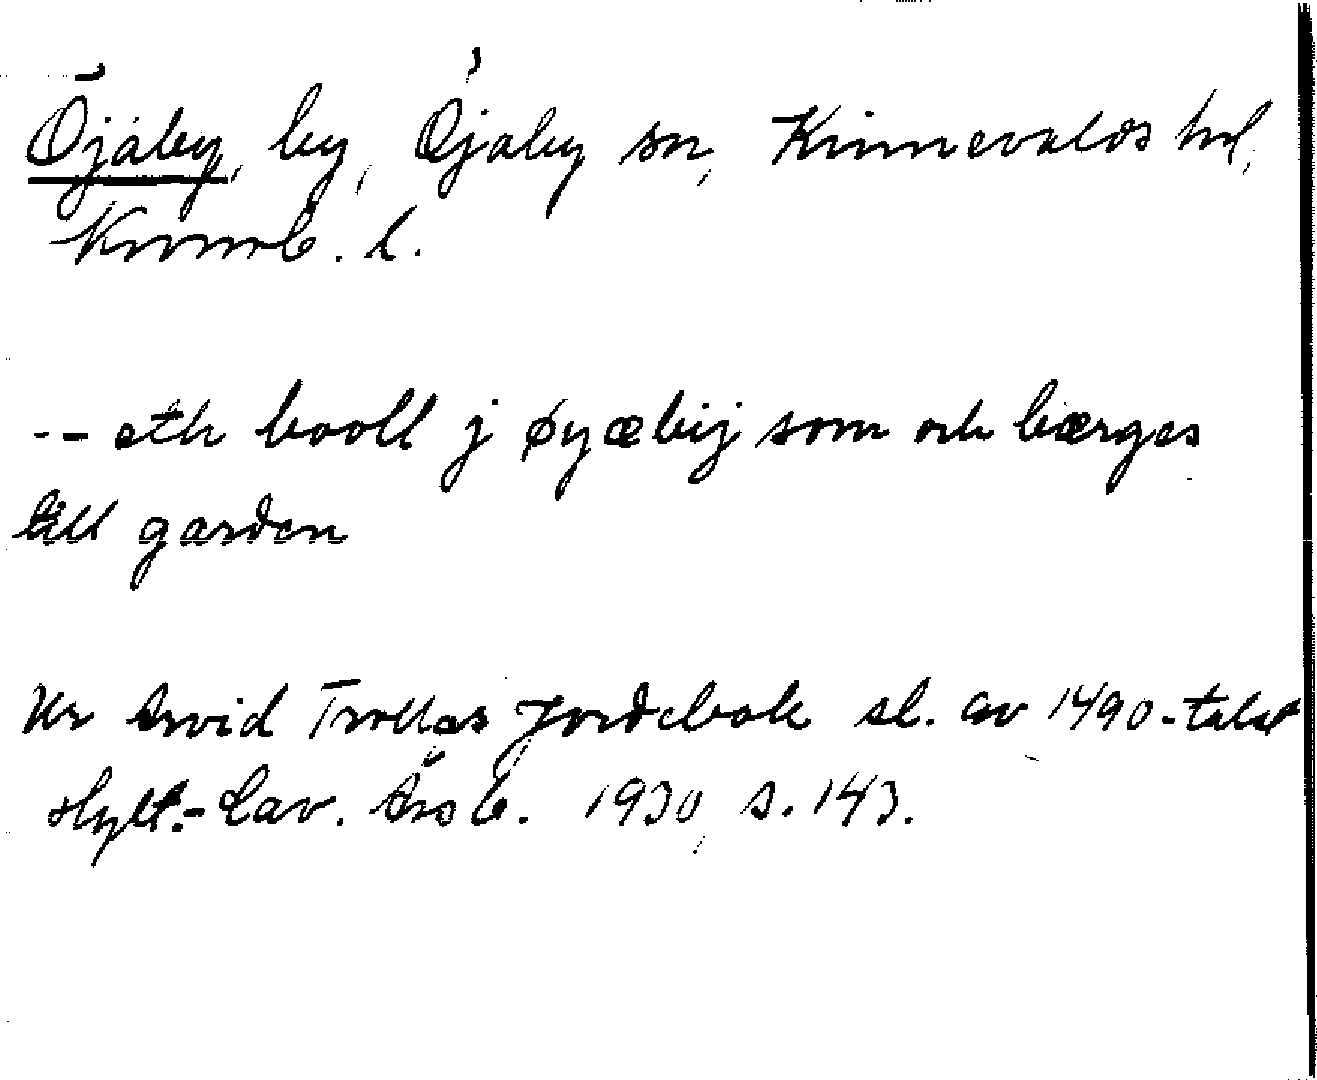 Öjaby, by, Öjaby sn, Kinnevalds hd,
Kronob. l.
-- eth booll j øyæbij som och bærges
till garden
Ur Arvid Trolles Jordebok sl. av 1490-talet
Hylt.-Cav. Årsb. 1930, s. 143.